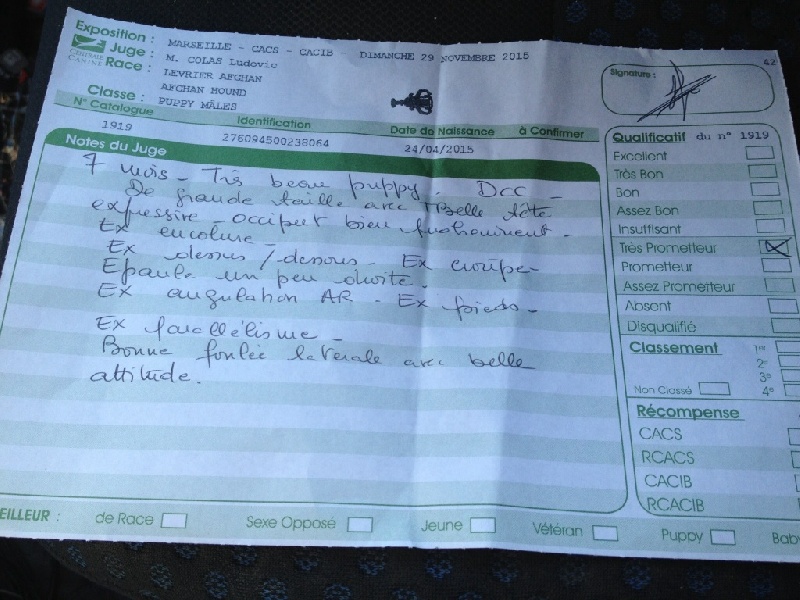 Exposition : MARSEILLE - CACS - CACIB - DIMANCHE 29 NOVEMBRE 2015
Juge : M. COLAS Ludovic
CENTRALE CANINE
Race : LEVRIER AFGHAN
AFGHAN HOUND
Classe : PUPPY MÂLES
62
Signature :
N° Catalogue Identification Date de Naissance à Confirmer
1919 276094500238064 24/04/2015
Notes du Juge
7 mois - Très beau puppy. Dcc -
De grande taille avec TBelle tête
expressive - occiput bien
Ex encolure -
Ex dessus / dessous. Ex croupe
Epaule un peu droite.
Ex angulation AR. Ex pieds -
Ex parallélisme -
Bonne foulée latérale avec belle
attitude.
Qualificatif du n° 1919
Excellent
Très Bon
Bon
Assez Bon
Insuffisant
Très Prometteur
Prometteur
Assez Prometteur
Absent
Disqualifié
Classement 1er
2e
3e
Non Classé 4e
Récompense
CACS
RCACS
CACIB
RCACIB
EILLEUR : de Race Sexe Opposé Jeune Vétéran Puppy Baby